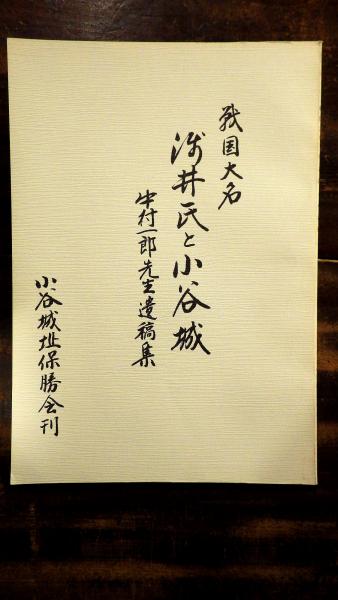 戦国大名
浅井氏と小谷城
中村一郎先生遺稿集
小谷城址保勝会刊